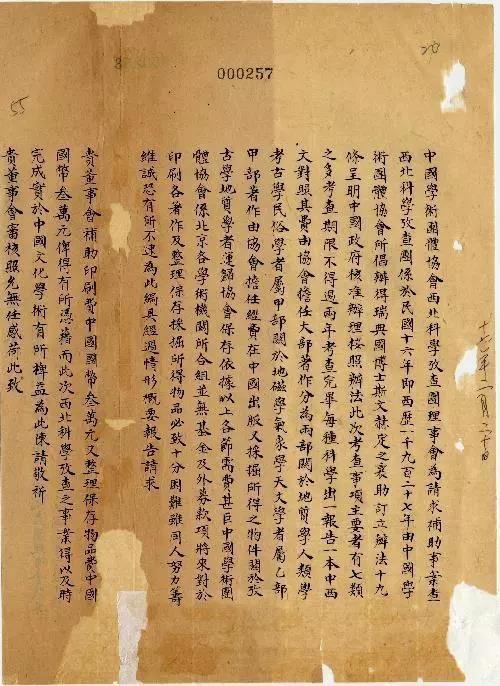 000257
中國學術團體協會西北科學攷查團理事會為請求補助事案查
西北科學攷查團係於民國十六年即西歷一千九百二十七年由中國學
術團體協會所倡辦得瑞典國博士斯文赫定之襄助訂立辦法十九
條呈明中國政府核准辦理按照辦法此次考查事項主要者有七類
之多考查期限不得過兩年考查完畢每種科學出一報告一本中西
文對照其費由協會擔任大部著作分為兩部關於地質學人類學
考古學民俗學者屬甲部關於地磁學氣象學天文學者屬乙部
甲部著作由協會擔任經費在中國出版又採掘所得之物件關於攷
古學地質學者運歸協會保存依據以上各節需費甚巨中國學術團
體協會係北京各學術機關所合組並無基金及外募款項將來對於
印刷各著作及整理保存採掘所得物品必致十分困難雖同人努力籌
維誠恐有所不逮為此編具經過情形概要報告請求
貴董事會補助印刷費中國國幣叁萬元又整理保存物品費中國
國幣叁萬元俾得有所憑藉而此次西北科學攷查之事業得以及時
完成實於中國文化學術有所裨益為此陳請敬祈
貴董事會審核照允無任感荷此致
55